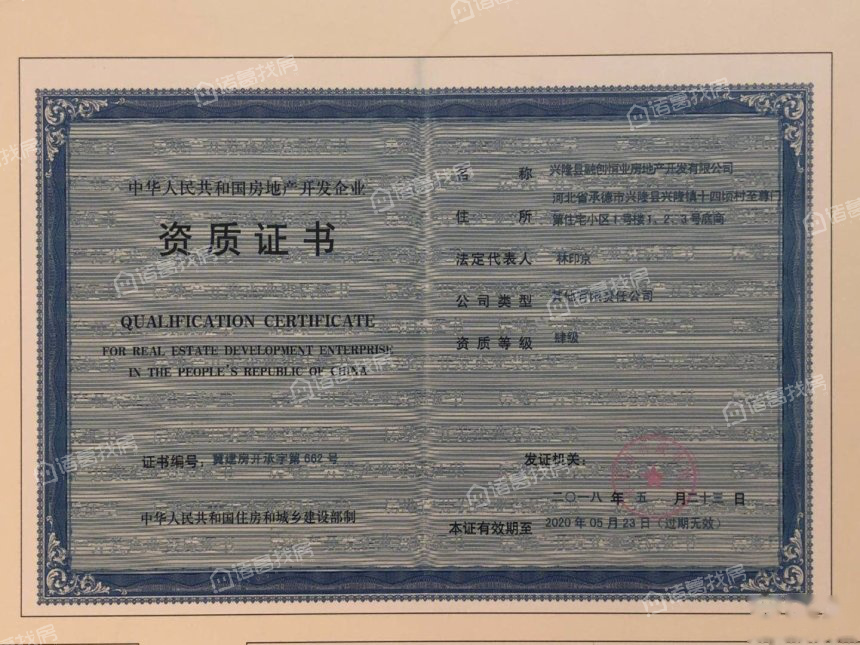 中华人民共和国房地产开发企业
资质证书
QUALIFICATION CERTIFICATE
FOR REAL ESTATE DEVELOPMENT ENTERPRISE
IN THE PEOPLE'S REPUBLIC OF CHINA
证书编号：冀建房开承字第 662 号
中华人民共和国住房和城乡建设部制
名 称 兴隆县融创恒业房地产开发有限公司
住 所 河北省承德市兴隆县兴隆镇十四顷村至尊门
第住宅小区1号楼1、2、3号底商
法定代表人 林印京
公司类型 其他有限责任公司
资质等级 肆级
发证机关：
二〇一八 年 五 月 二十三 日
本证有效期至 2020 年 05 月 23 日（过期无效）
诸葛找房